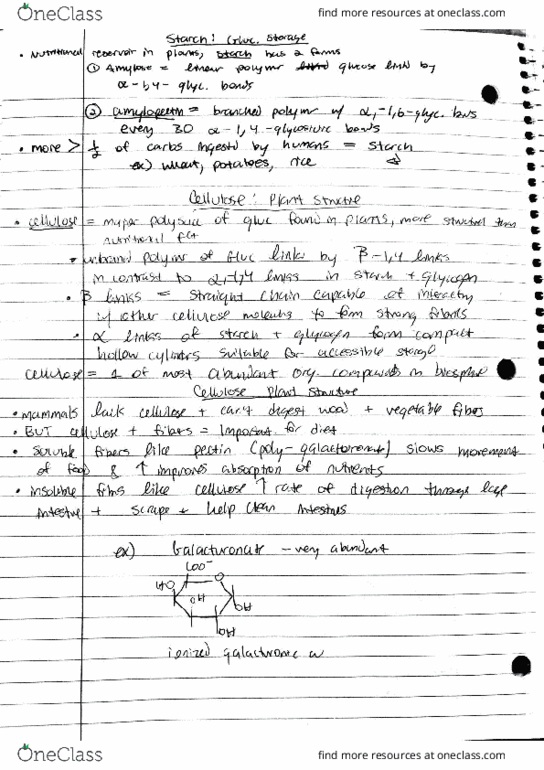 OneClass
find more resources at oneclass.com
Starch: Gluc. Storage
• Nutritional reservoir in plants, starch has 2 forms
① Amylose = linear polymr glucose link by
α-1,4-glyc. bonds
② amylopectin = branched polymr w/ α,-1,6-glyc. bonds
every 30 α-1,4-glycosidic bonds
• more > 1/2 of carbs ingestd by humans = starch
ex) wheat, potatoes, rice
Cellulose: Plant Structre
• cellulose = major polysacc of gluc found in plants, more structrl then
nutritional
• unbrand polymr of Gluc links by β-1,4 links
in contrast to α,-1,4 links in starch + glycogen
• β links = straight chain capable of interactng
w/ other cellulose moleculs to form strong fibrils
• α links of starch + glycogen form compact
hollow cylindrs suitable for accessible storage
cellulose = 1 of most abundant org. compounds in biosphre
Cellulose Plant Structure
• mammals lack cellulose + can't digest wood + vegetable fibers
• BUT cellulose + fibers = important for diet
• Soluble fibers like pectin (poly-galactoronate) slows movement
of food & ↑ improves absorption of nutrients
• insoluble fibrs like cellulose ↑ rate of digestion through large
intestine + scrape + help clean intestines
ex) Galacturonate - very abundant
COO⁻
HO
O
OH
OH
OH
ionized galacturonic a
OneClass
find more resources at oneclass.com